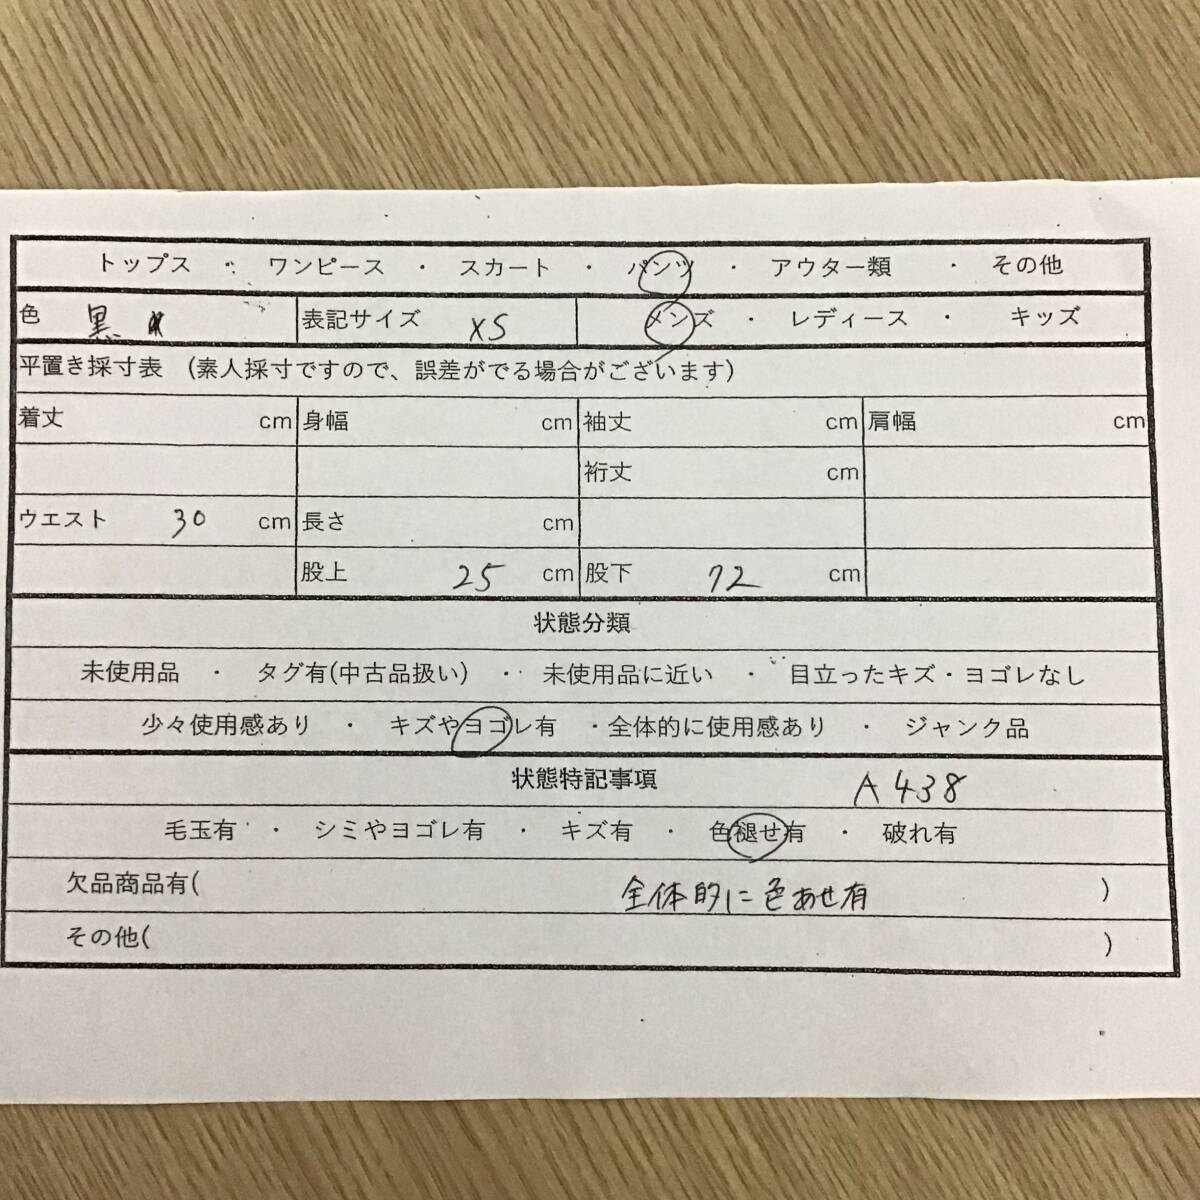 トップス ・ ワンピース ・ スカート ・ パンツ ・ アウター類 ・ その他
色 黒 表記サイズ XS メンズ ・ レディース ・ キッズ
平置き採寸表 (素人採寸ですので、誤差がでる場合がございます)
着丈 cm 身幅 cm 袖丈 cm 肩幅 cm
裄丈 cm
ウエスト 30 cm 長さ cm
股上 25 cm 股下 72 cm
状態分類
未使用品 ・ タグ有(中古品扱い) ・ 未使用品に近い ・ 目立ったキズ・ヨゴレなし
少々使用感あり ・ キズやヨゴレ有 ・全体的に使用感あり ・ ジャンク品
状態特記事項 A438
毛玉有 ・ シミやヨゴレ有 ・ キズ有 ・ 色褪せ有 ・ 破れ有
欠品商品有( 全体的に色あせ有 )
その他( )